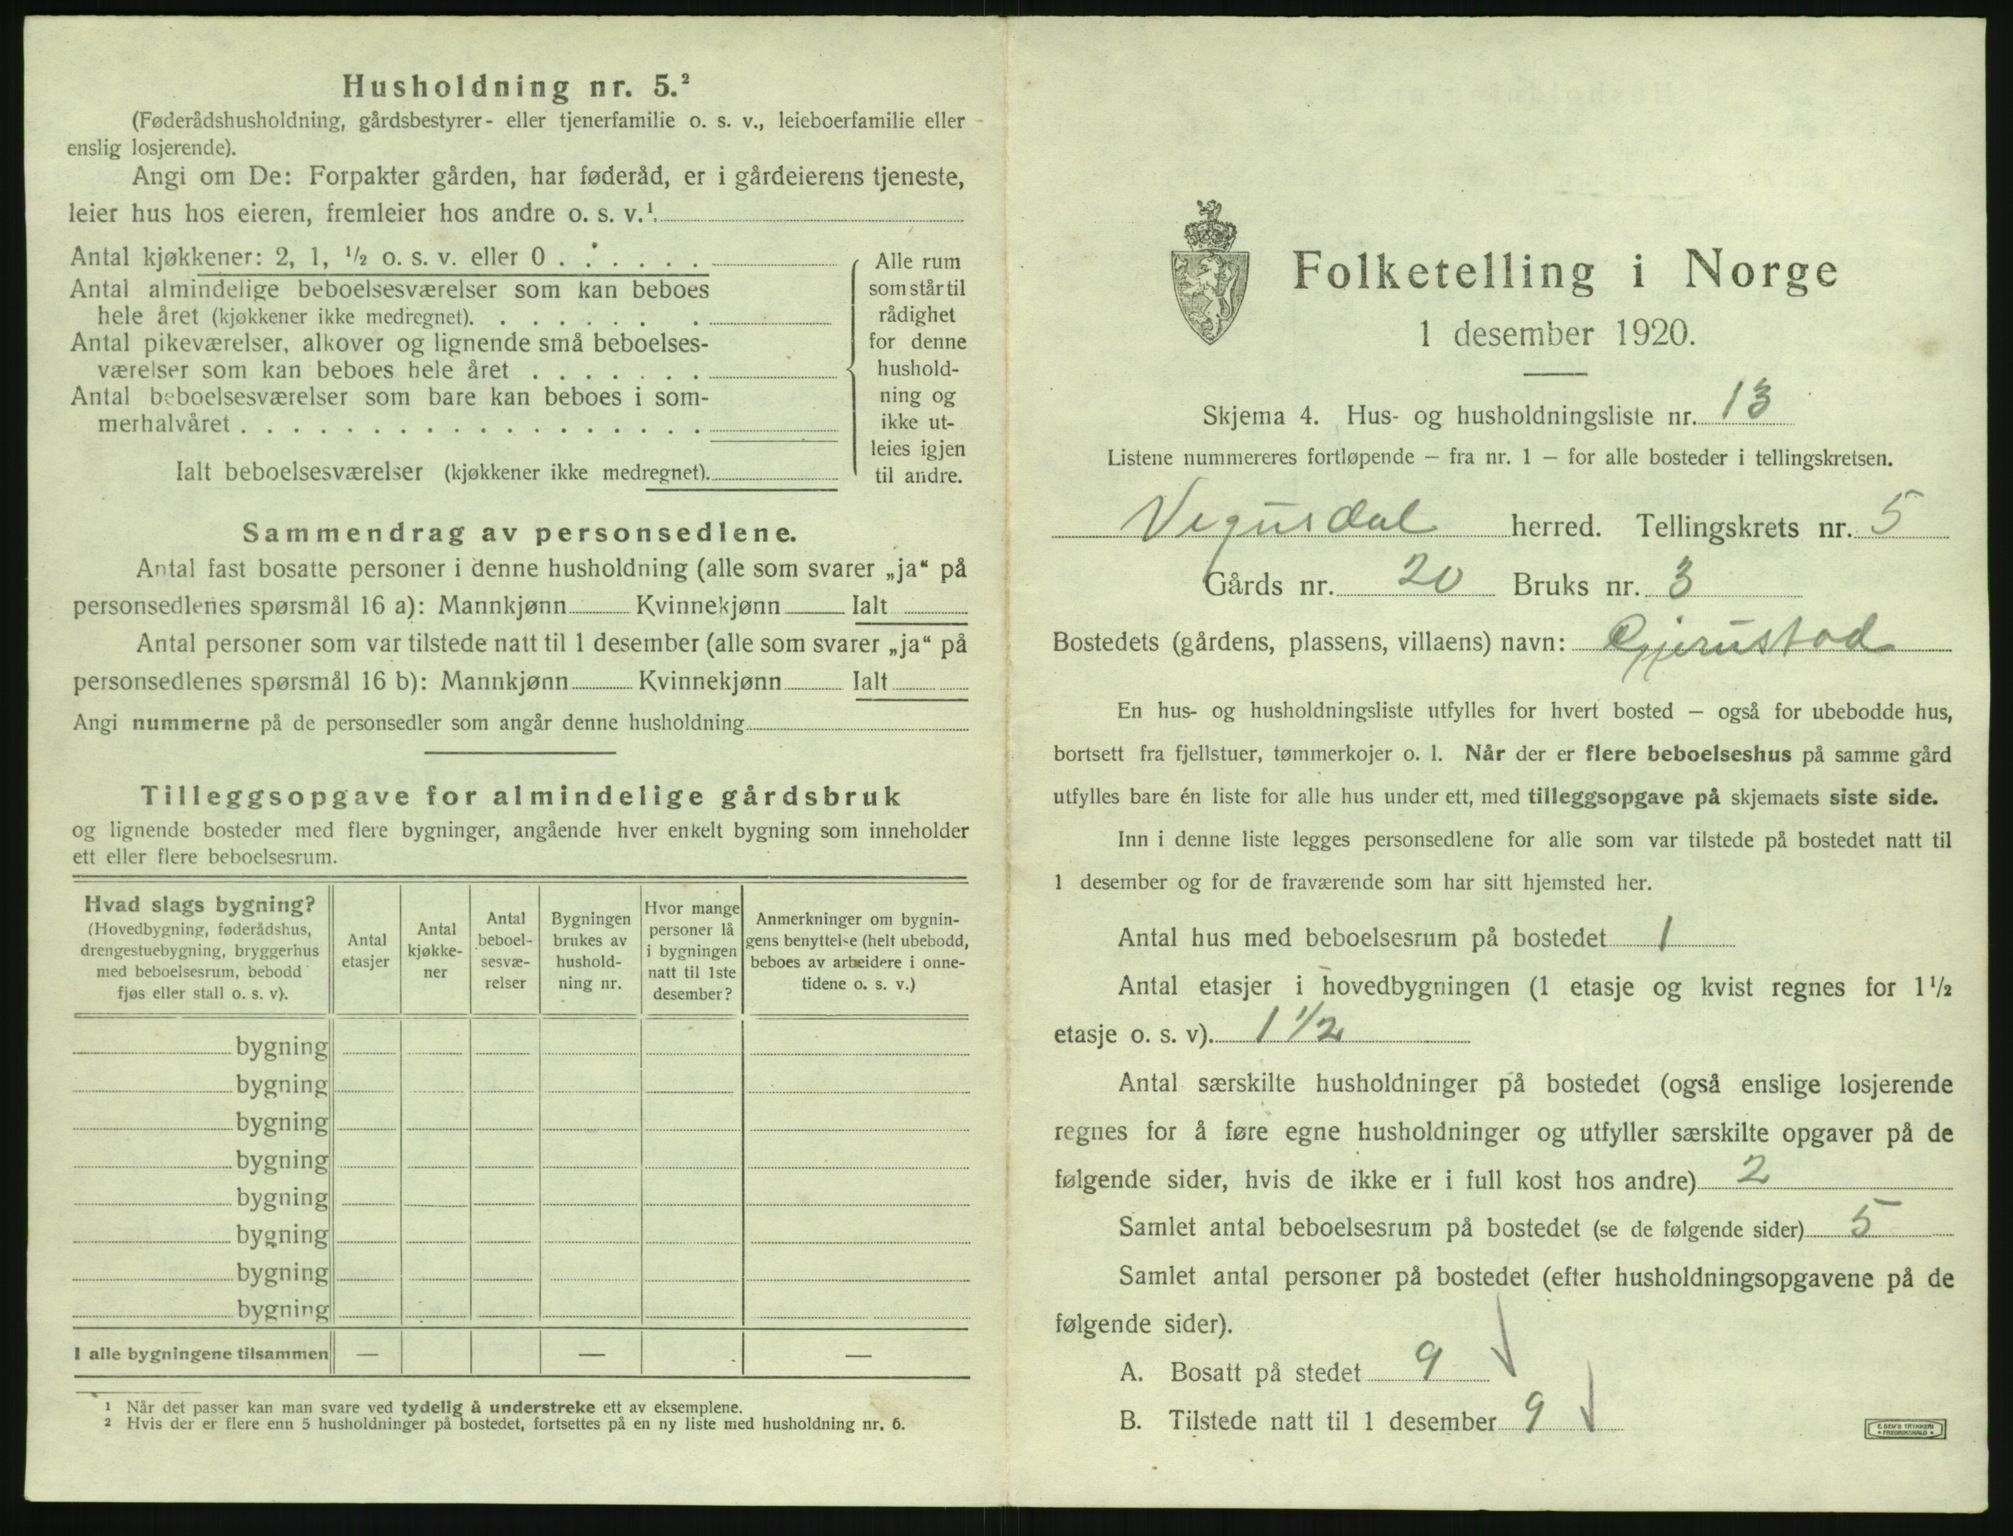 Husholdning nr. 5.²
(Føderådshusholdning, gårdsbestyrer- eller tjenerfamilie o. s. v., leieboerfamilie eller
enslig losjerende).
Angi om De: Forpakter gården, har føderåd, er i gårdeierens tjeneste,
leier hus hos eieren, fremleier hos andre o. s. v.¹
Antal kjøkkener: 2, 1, ½ o. s. v. eller 0 . . . . . .
Antal almindelige beboelsesværelser som kan beboes
hele året (kjøkkener ikke medregnet). . . . . . . .
Antal pikeværelser, alkover og lignende små beboelses-
værelser som kan beboes hele året . . . . . . .
Antal beboelsesværelser som bare kan beboes i som-
merhalvåret . . . . . . . . . . . . . . . . . .
Ialt beboelsesværelser (kjøkkener ikke medregnet).
Alle rum
som står til
rådighet
for denne
hushold-
ning og
ikke ut-
leies igjen
til andre.
Sammendrag av personsedlene.
Antal fast bosatte personer i denne husholdning (alle som svarer „ja“ på
personsedlenes spørsmål 16 a): Mannkjønn Kvinnekjønn Ialt
Antal personer som var tilstede natt til 1 desember (alle som svarer „ja“ på
personsedlenes spørsmål 16 b): Mannkjønn Kvinnekjønn Ialt
Angi nummerne på de personsedler som angår denne husholdning
Tilleggsopgave for almindelige gårdsbruk
og lignende bosteder med flere bygninger, angående hver enkelt bygning som inneholder
ett eller flere beboelsesrum.
Hvad slags bygning?
(Hovedbygning, føderådshus,
drengestuebygning, bryggerhus
med beboelsesrum, bebodd
fjøs eller stall o. s. v).
Antal
etasjer
Antal
kjøkke-
ner
Antal
beboel-
sesvæ-
relser
Bygningen
brukes av
hushold-
ning nr.
Hvor mange
personer lå
i bygningen
natt til 1ste
desember?
Anmerkninger om bygnin-
gens benyttelse (helt ubebodd,
beboes av arbeidere i onne-
tidene o. s. v.)
bygning
bygning
bygning
bygning
bygning
bygning
bygning
bygning
I alle bygningene tilsammen — — —
¹ Når det passer kan man svare ved tydelig å understreke ett av eksemplene.
² Hvis der er flere enn 5 husholdninger på bostedet, fortsettes på en ny liste med husholdning nr. 6.
Folketelling i Norge
1 desember 1920.
Skjema 4. Hus- og husholdningsliste nr. 13
Listene nummereres fortløpende – fra nr. 1 – for alle bosteder i tellingskretsen.
Vegusdal herred. Tellingskrets nr. 5
Gårds nr. 20 Bruks nr. 3
Bostedets (gårdens, plassens, villaens) navn: Gjerustad
En hus- og husholdningsliste utfylles for hvert bosted – også for ubebodde hus,
bortsett fra fjellstuer, tømmerkojer o. l. Når der er flere beboelseshus på samme gård
utfylles bare én liste for alle hus under ett, med tilleggsopgave på skjemaets siste side.
Inn i denne liste legges personsedlene for alle som var tilstede på bostedet natt til
1 desember og for de fraværende som har sitt hjemsted her.
Antal hus med beboelsesrum på bostedet 1
Antal etasjer i hovedbygningen (1 etasje og kvist regnes for 1½
etasje o. s. v). 1 1/2
Antal særskilte husholdninger på bostedet (også enslige losjerende
regnes for å føre egne husholdninger og utfyller særskilte opgaver på de
følgende sider, hvis de ikke er i full kost hos andre) 2
Samlet antal beboelsesrum på bostedet (se de følgende sider) 5
Samlet antal personer på bostedet (efter husholdningsopgavene på de
følgende sider).
A. Bosatt på stedet 9
B. Tilstede natt til 1 desember 9
E. SEM'S TRYKKERI
FREDRIKSHALD